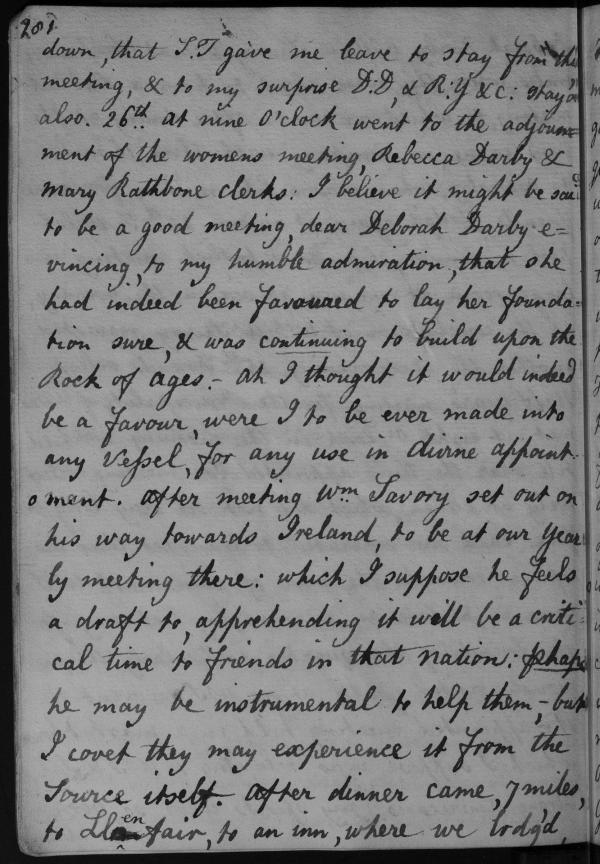 281
down, that S.T gave me leave to stay from the
meeting, & to my surprise D.D, & R:Y &c: stay'd
also. 26th at nine O'clock went to the adjourn=
ment of the womens meeting, Rebecca Darby &
Mary Rathbone clerks: I believe it might be said
to be a good meeting, dear Deborah Darby e=
vincing, to my humble admiration, that she
had indeed been favoured to lay her founda=
tion sure, & was continuing to build upon the
Rock of ages.- ah I thought it would indeed
be a favour, were I to be ever made into
any vessel, for any use in divine appoint-
ment. after meeting Wm Savory set out on
his way towards Ireland, to be at our Year
ly meeting there: which I suppose he feels
a draft to, apprehending it will be a criti=
cal time to friends in that nation: phaps
he may be instrumental to help them,- but
I covet they may experience it from the
Source itself. After dinner came, 7 miles,
to Llenfair, to an inn, where we lodg'd,